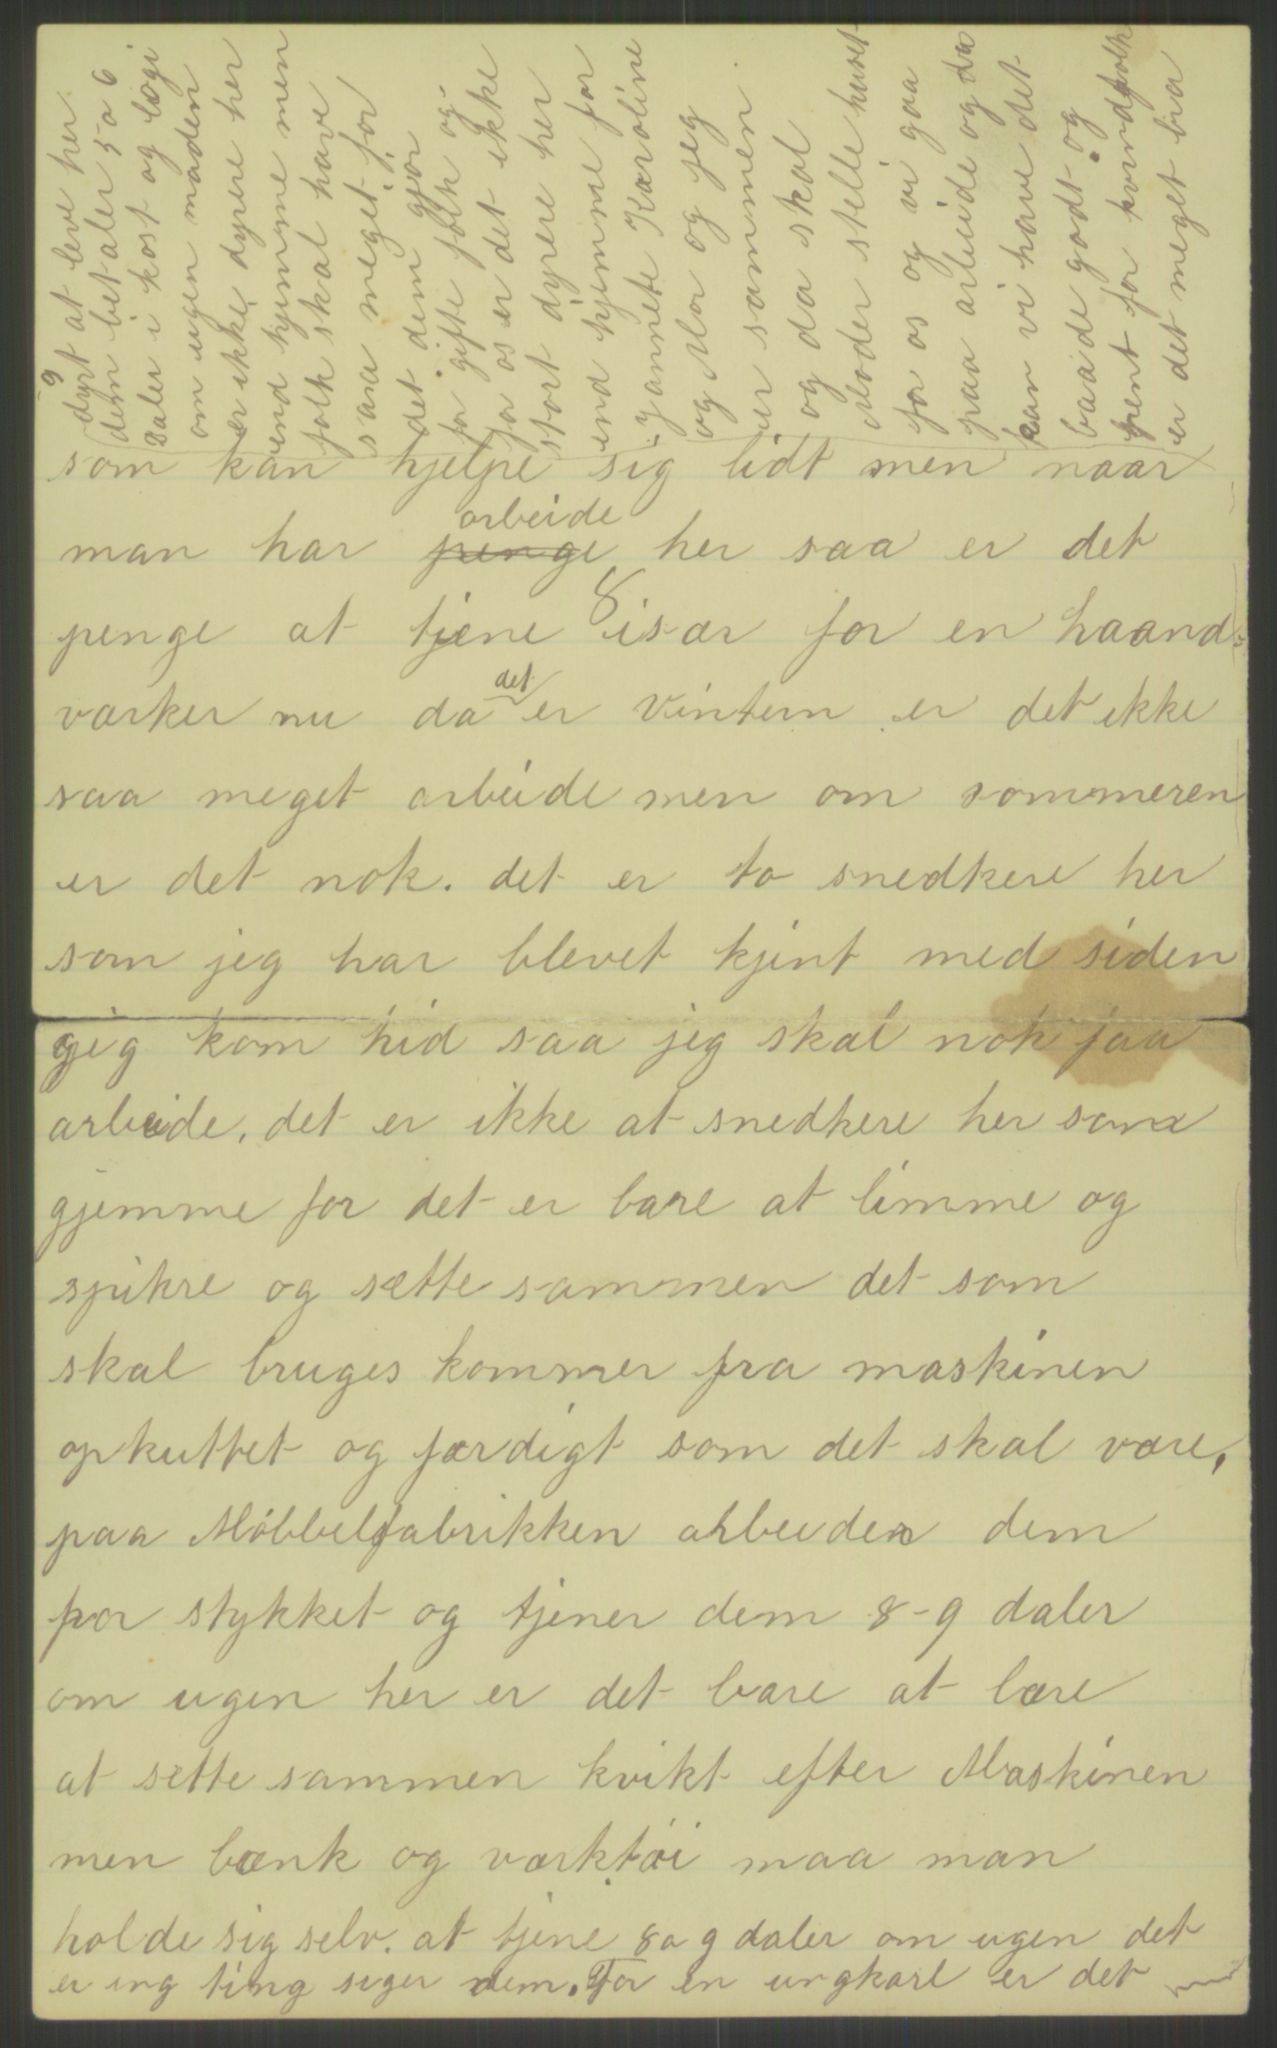 som kan hjelpe sig lidt men naar
man har penge arbeide her saa er det
penge at tjene 8 især for en haand-
værker nu da det er Vintern er det ikke
saa meget arbeide men om sommeren
er det nok. det er to snedkere her
som jeg har blevet kjint med siden
gjeg kom hid saa jeg skal nok faa
arbeide. det er ikke at snedkere her som
gjemme for det er bare at limme og
spikre og sætte sammen det som
skal bruges kommer fra maskinen
opkuttet og færdigt som det skal være.
paa Möbbelfabrikken arbeider dem
por stykket og tjener dem 8-9 daler
om ugen her er det bare at lære
at sette sammen kvikt efter Maskinen
men bænk og værktøi maa man
holde sig selv. at tjene 8 a 9 daler om ugen det
er ing ting siger dem. For en ungkarl er det
9
dyrt at leve her
dem betaler 5 a 6
Daler i kost og logi
om ugen maaden
er ikke dyrere her
end hjemme men
folk skal have
saa meget for
det dem gjør
for gifte folk og
for os er det ikke
stort dyrere her
end hjemme for
Karoline
og Mor og jeg
er sammen
og da skal
Moder stelle huset
for os og vi gaa
paa arbeide og da
kan vi have det
baade godt og
pent for kvindfolk
er det meget bra